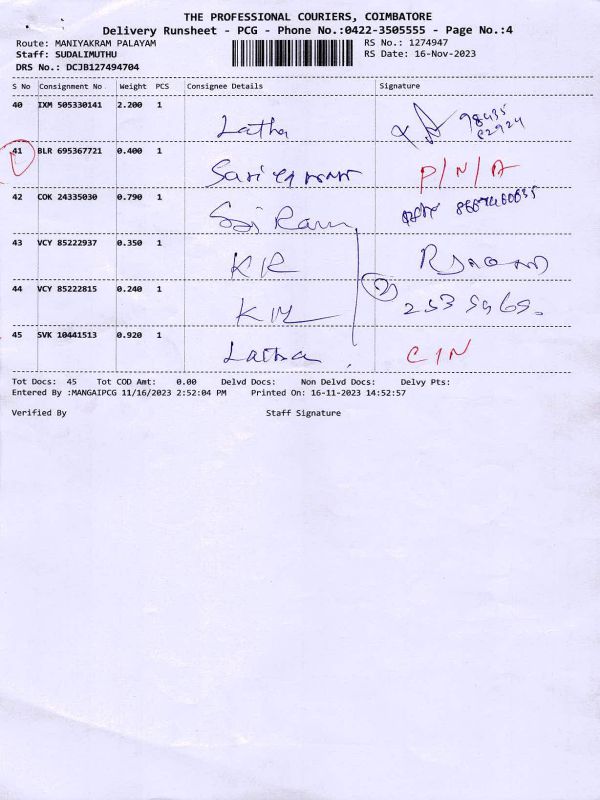 THE PROFESSIONAL COURIERS, COIMBATORE
Delivery Runsheet - PCG - Phone No.:0422-3505555 - Page No.:4
Route: MANIYAKRAM PALAYAM RS No.: 1274947
Staff: SUDALIMUTHU RS Date: 16-Nov-2023
DRS No.: DCJB127494704
S No Consignment No Weight PCS Consignee Details Signature
40 IXM 505330141 2.200 1 Latha 98435
41 BLR 695367721 0.400 1 P/N/A
42 COK 24335030 0.790 1 Sai Ram
43 VCY 85222937 0.350 1 KR
44 VCY 85222815 0.240 1 2
45 SVK 10441513 0.920 1 Latha C/N
Tot Docs: 45 Tot COD Amt: 0.00 Delvd Docs: Non Delvd Docs: Delvy Pts:
Entered By :MANGAIPCG 11/16/2023 2:52:04 PM Printed On: 16-11-2023 14:52:57
Verified By Staff Signature